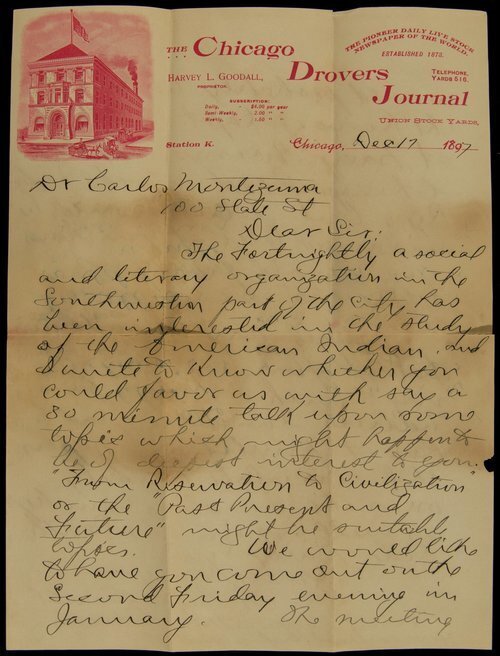 THE Chicago
Drovers
Journal
HARVEY L. GOODALL,
PROPRIETOR.
SUBSCRIPTION:
Daily, - $4.00 per year
Semi Weekly, - 2.00 " "
Weekly, - 1.50 " "
THE PIONEER DAILY LIVE STOCK
NEWSPAPER OF THE WORLD.
ESTABLISHED 1873.
TELEPHONE,
YARDS 516.
UNION STOCK YARDS,
Station K. Chicago, Dec 17 1897
Dr Carlos Montezuma
100 State St
Dear Sir:
The Fortnightly a social
and literary organization in the
Southwestern part of the city has
been interested in the study
of the American Indian and
I write to know whether you
could favor us with say a
30 minute talk upon some
topic which might happen to
be of deepest interest to you.
"From Reservation to Civilization"
or the "Past Present and
Future" might be suitable
topics. We would like
to have you come out on the
Second Friday evening in
January. The meeting